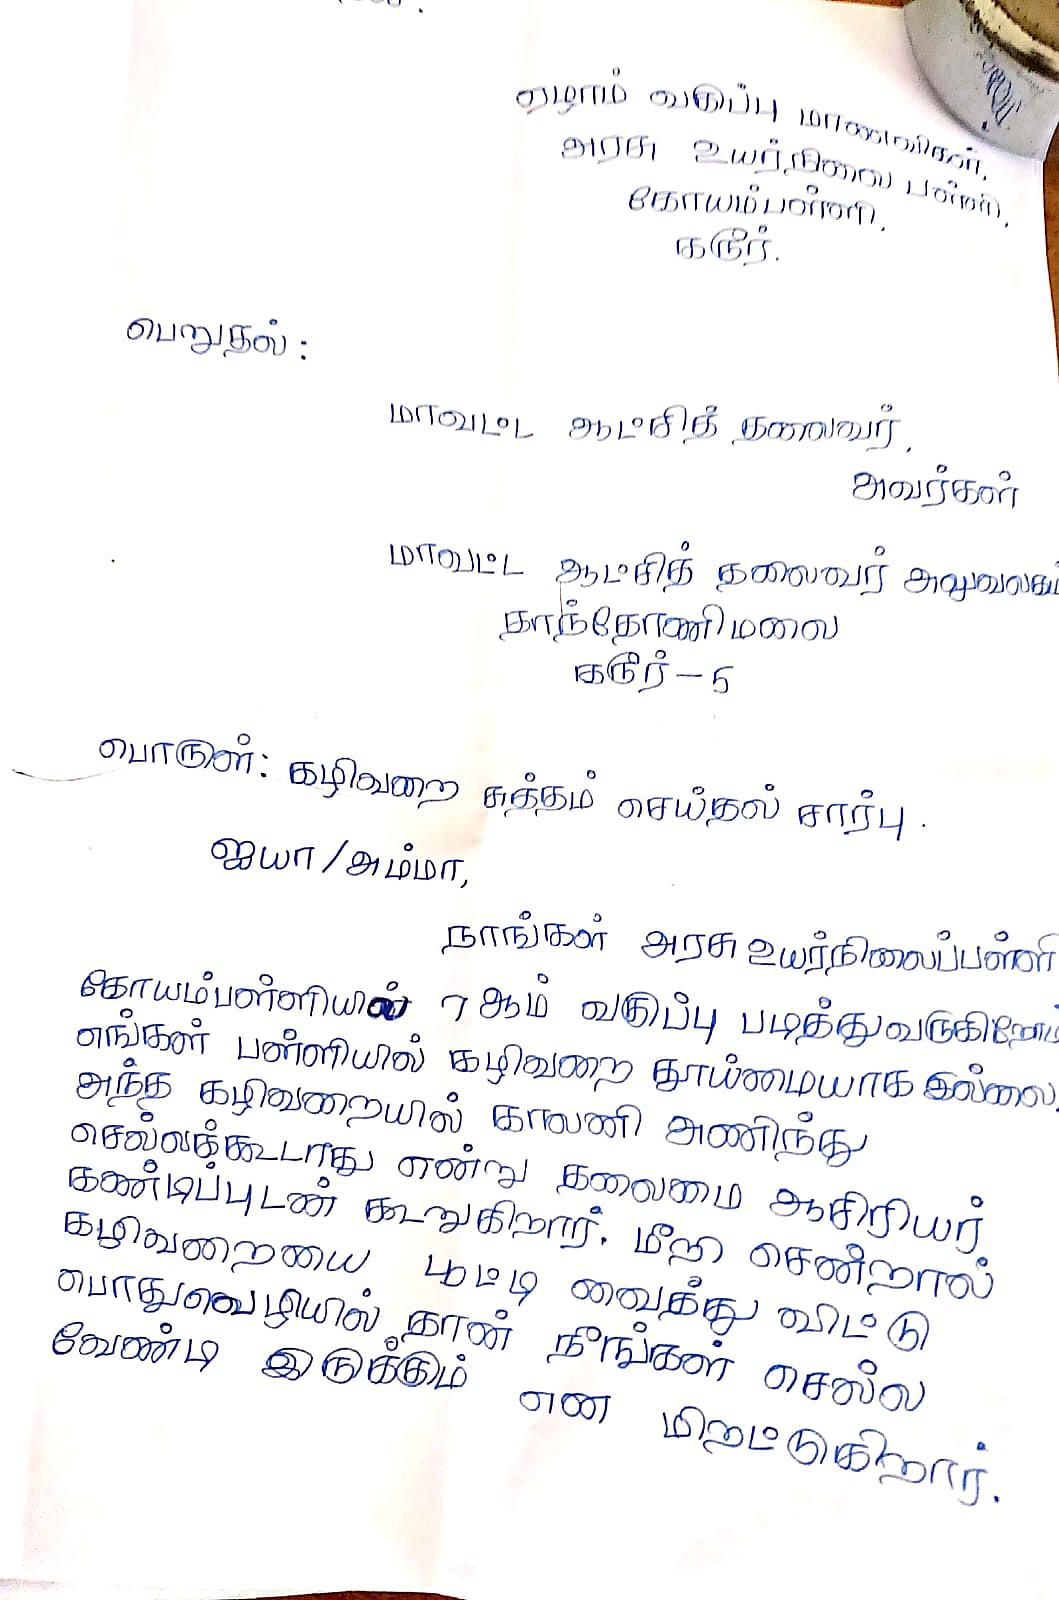 ஏழாம் வகுப்பு மாணவிகள்,
அரசு உயர்நிலை பள்ளி,
கோயம்பள்ளி,
கரூர்.
பெறுதல் :
மாவட்ட ஆட்சித் தலைவர்,
அவர்கள்
மாவட்ட ஆட்சித் தலைவர் அலுவலகம்
தாந்தோணிமலை
கரூர் – 5
பொருள் : கழிவறை சுத்தம் செய்தல் சார்பு .
ஐயா / அம்மா,
நாங்கள் அரசு உயர்நிலைப்பள்ளி
கோயம்பள்ளியில் 7 ஆம் வகுப்பு படித்துவருகிறோம்
எங்கள் பள்ளியில் கழிவறை தூய்மையாக இல்லை.
அந்த கழிவறையில் காலணி அணிந்து
செல்லக்கூடாது என்று தலைமை ஆசிரியர்
கண்டிப்புடன் கூறுகிறார். மீறி சென்றால்
கழிவறையை பூட்டி வைத்து விட்டு
பொதுவெழியில் தான் நீங்கள் செல்ல
வேண்டி இருக்கும் என மிறட்டுகிறார்.